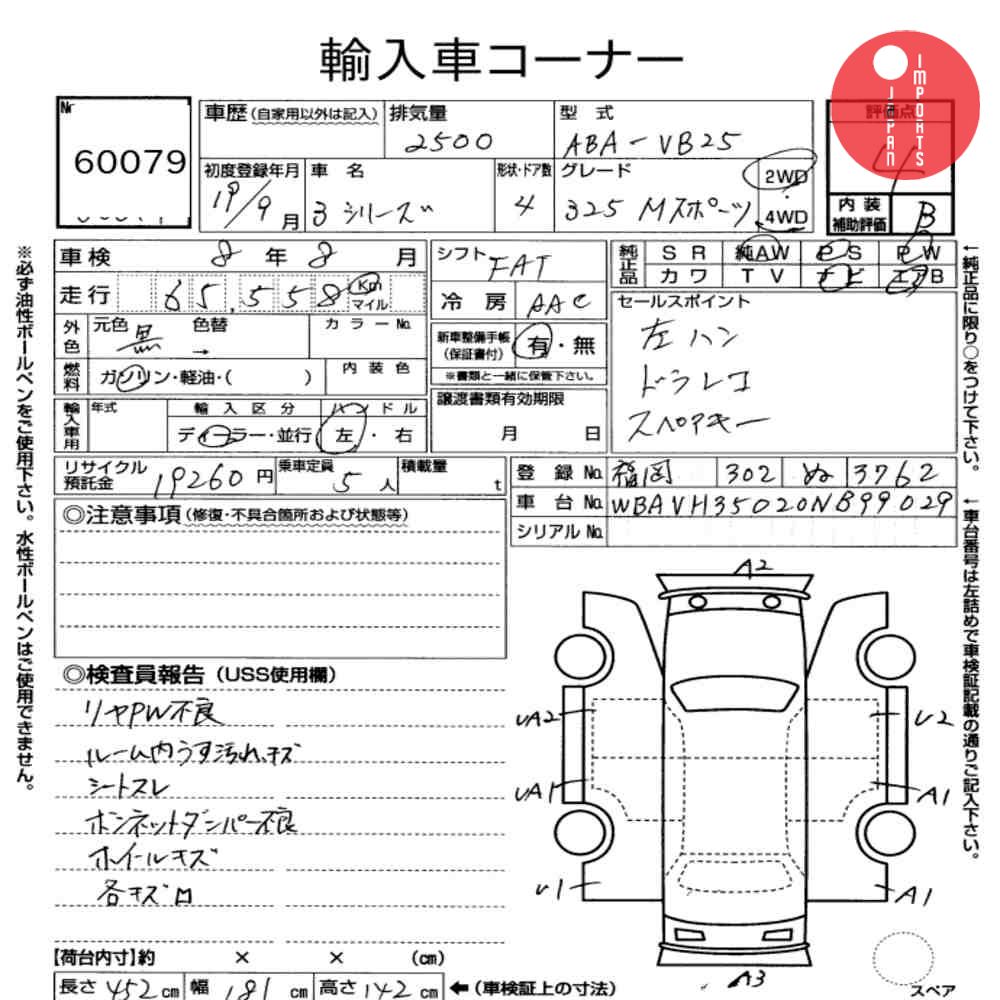 輸入車コーナー
IMPORTS
JAPAN
Nr
60079
車歴(自家用以外は記入)
排気量
2500
型 式
ABA-VB25
評価点
4
初度登録年月
19/9月
車 名
3シリーズ
形状・ドア数
4
グレード
325 Mスポーツ
2WD
4WD
内装補助評価
B
車検 8年 8月
走行 65,558 Km マイル
外色
元色 黒
色替 →
カラーNo.
燃料
ガソリン・軽油・( )
内装色
輸入車用
年式
輸入区分
ディーラー・並行
ハンドル
左・右
シフト FAT
冷房 AAC
新車整備手帳(保証書付)
有・無
※書類と一緒に保管下さい。
譲渡書類有効期限
月 日
純正品
SR 純AW PS PW
カワ TV ナビ エアB
セールスポイント
左ハン
ドラレコ
スペアキー
リサイクル預託金 19260円
乗車定員 5人
積載量 t
登録No. 福岡 302 ぬ 3762
車台No. WBAVH35020NB99029
シリアルNo.
◎注意事項(修復・不具合箇所および状態等)
◎検査員報告(USS使用欄)
リヤPW不良
ルーム内うす汚れ、キズ
シートスレ
ボンネットダンパー不良
ホイールキズ
各キズ
A2
UA2
U2
UA1
A1
U1
A1
A3
スペア
【荷台内寸】約 × × (cm)
長さ 452cm 幅 181cm 高さ 142cm ←(車検証上の寸法)
※必ず油性ボールペンをご使用下さい。水性ボールペンはご使用できません。
←純正品に限り○をつけて下さい。
←車台番号は左詰めで車検証記載の通りご記入下さい。